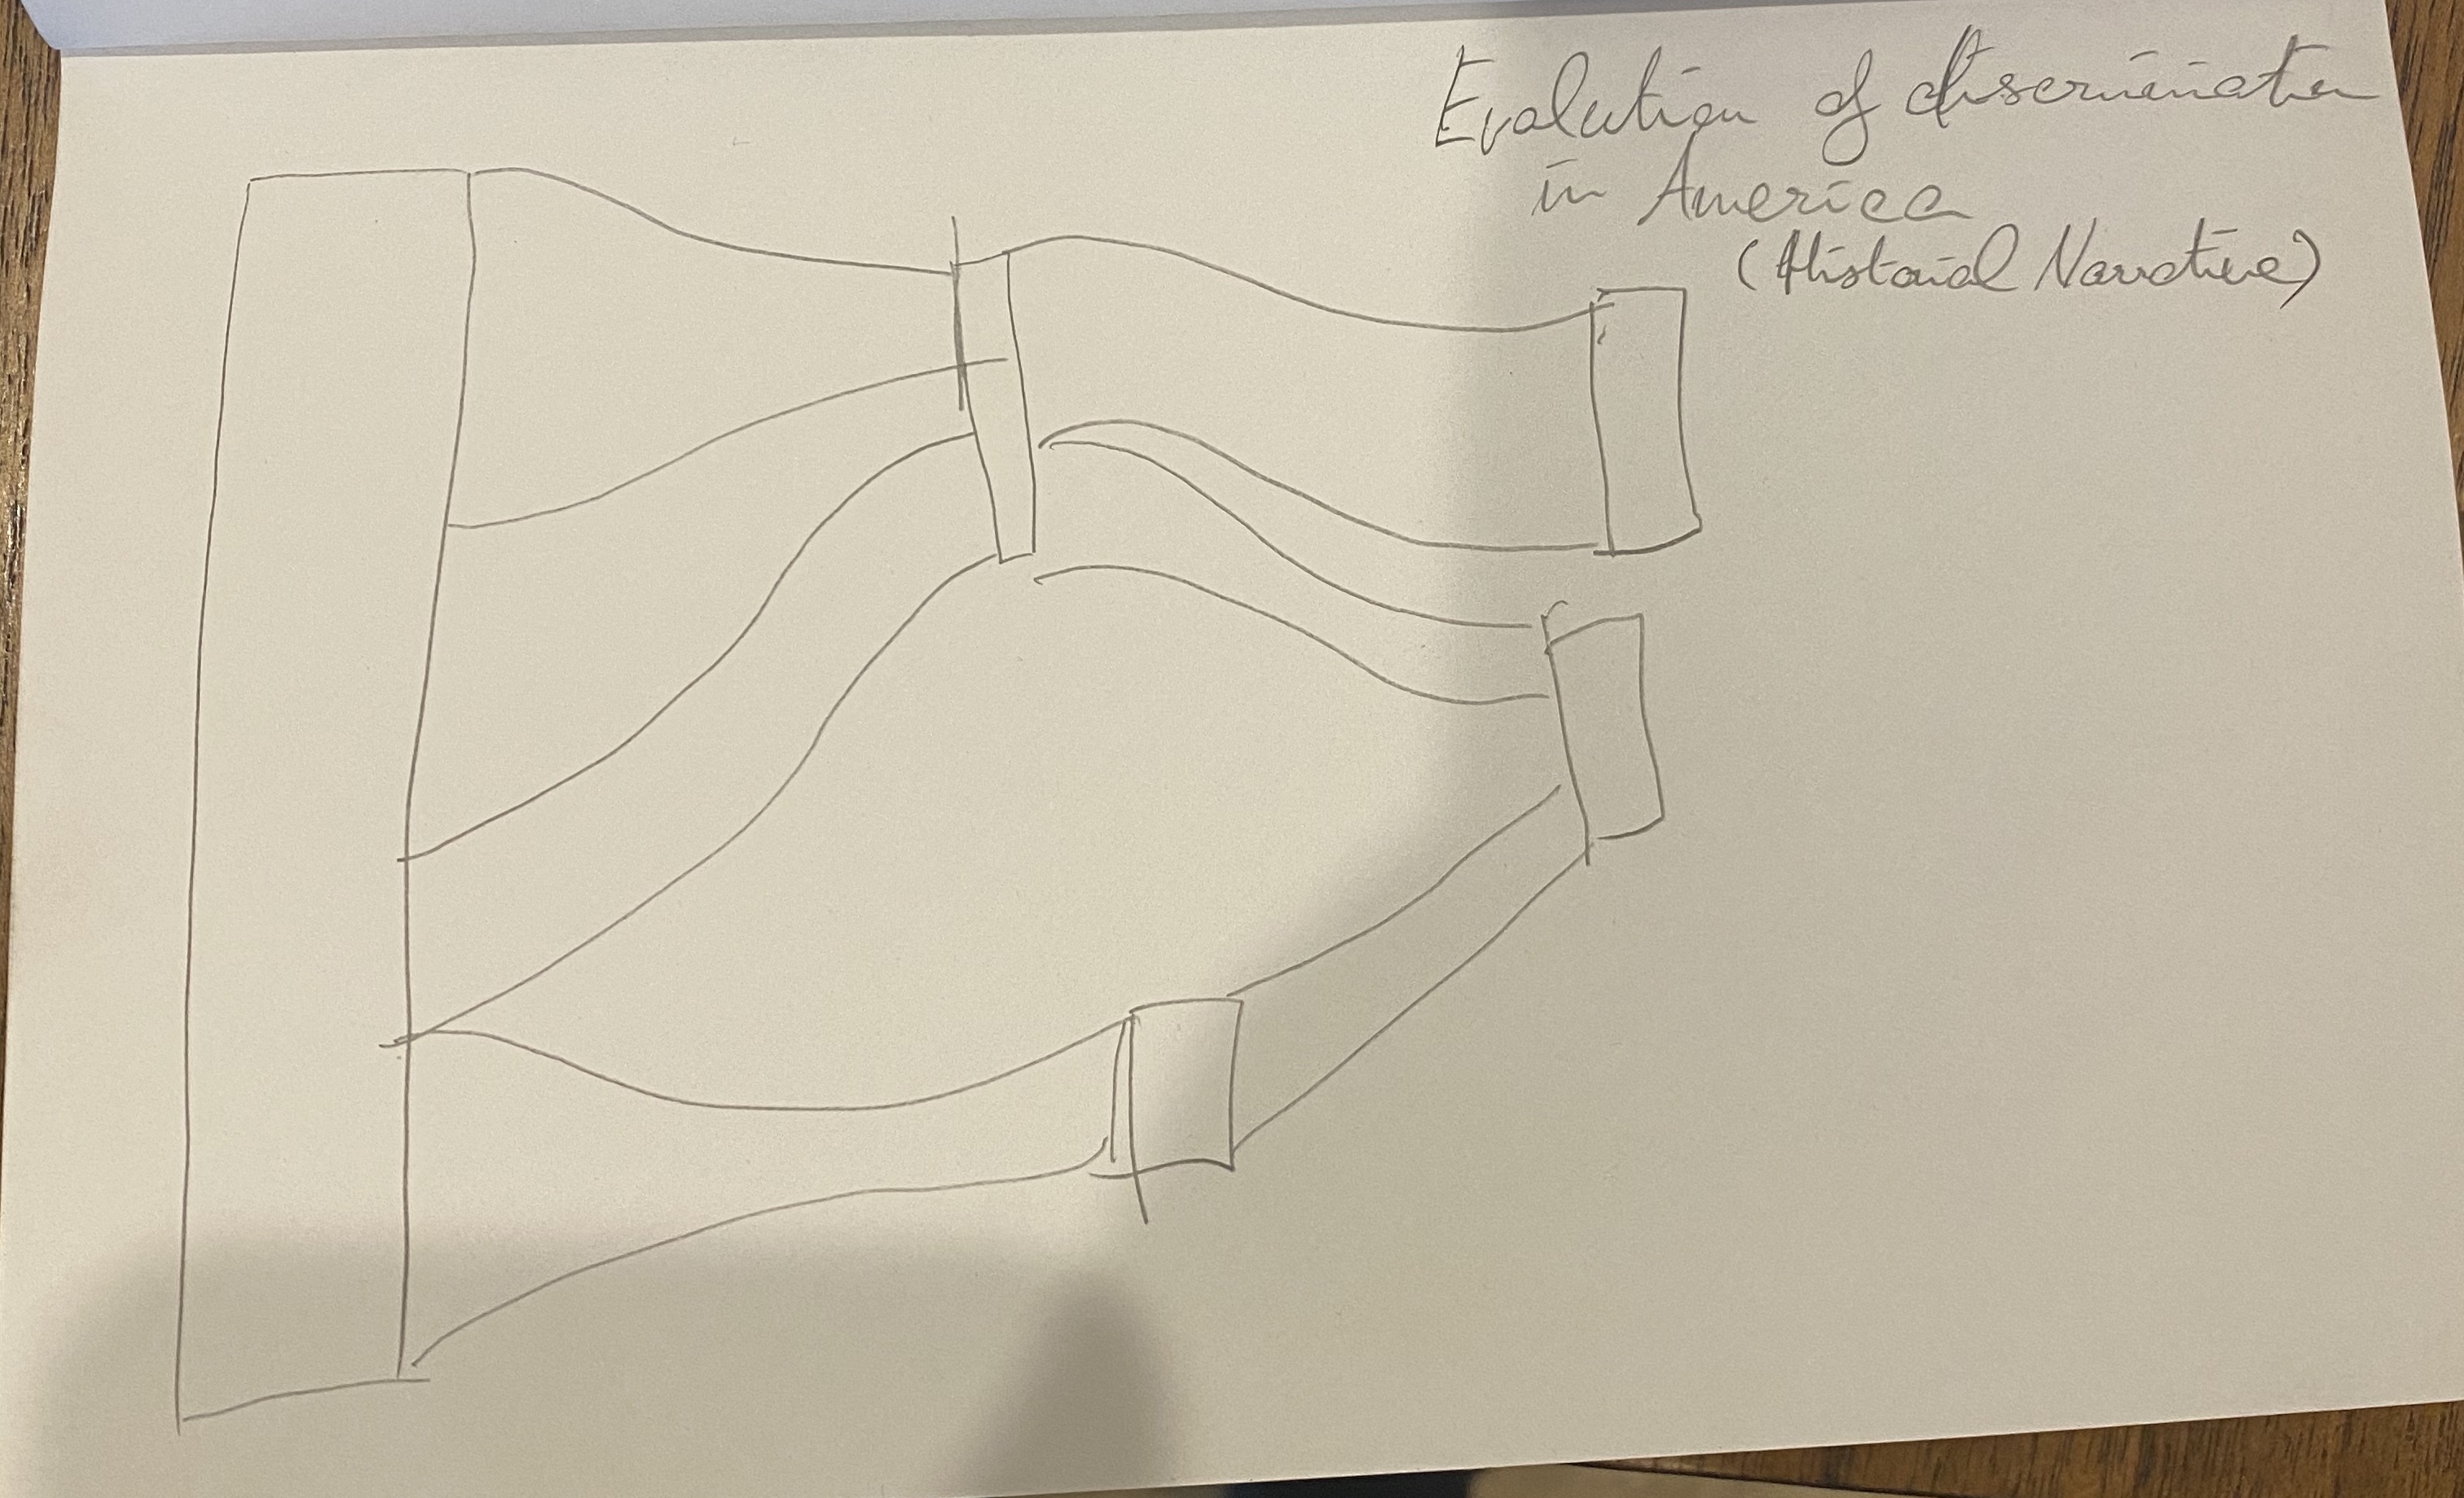 Evolution of discrimination
in America
(Historial Narrative)